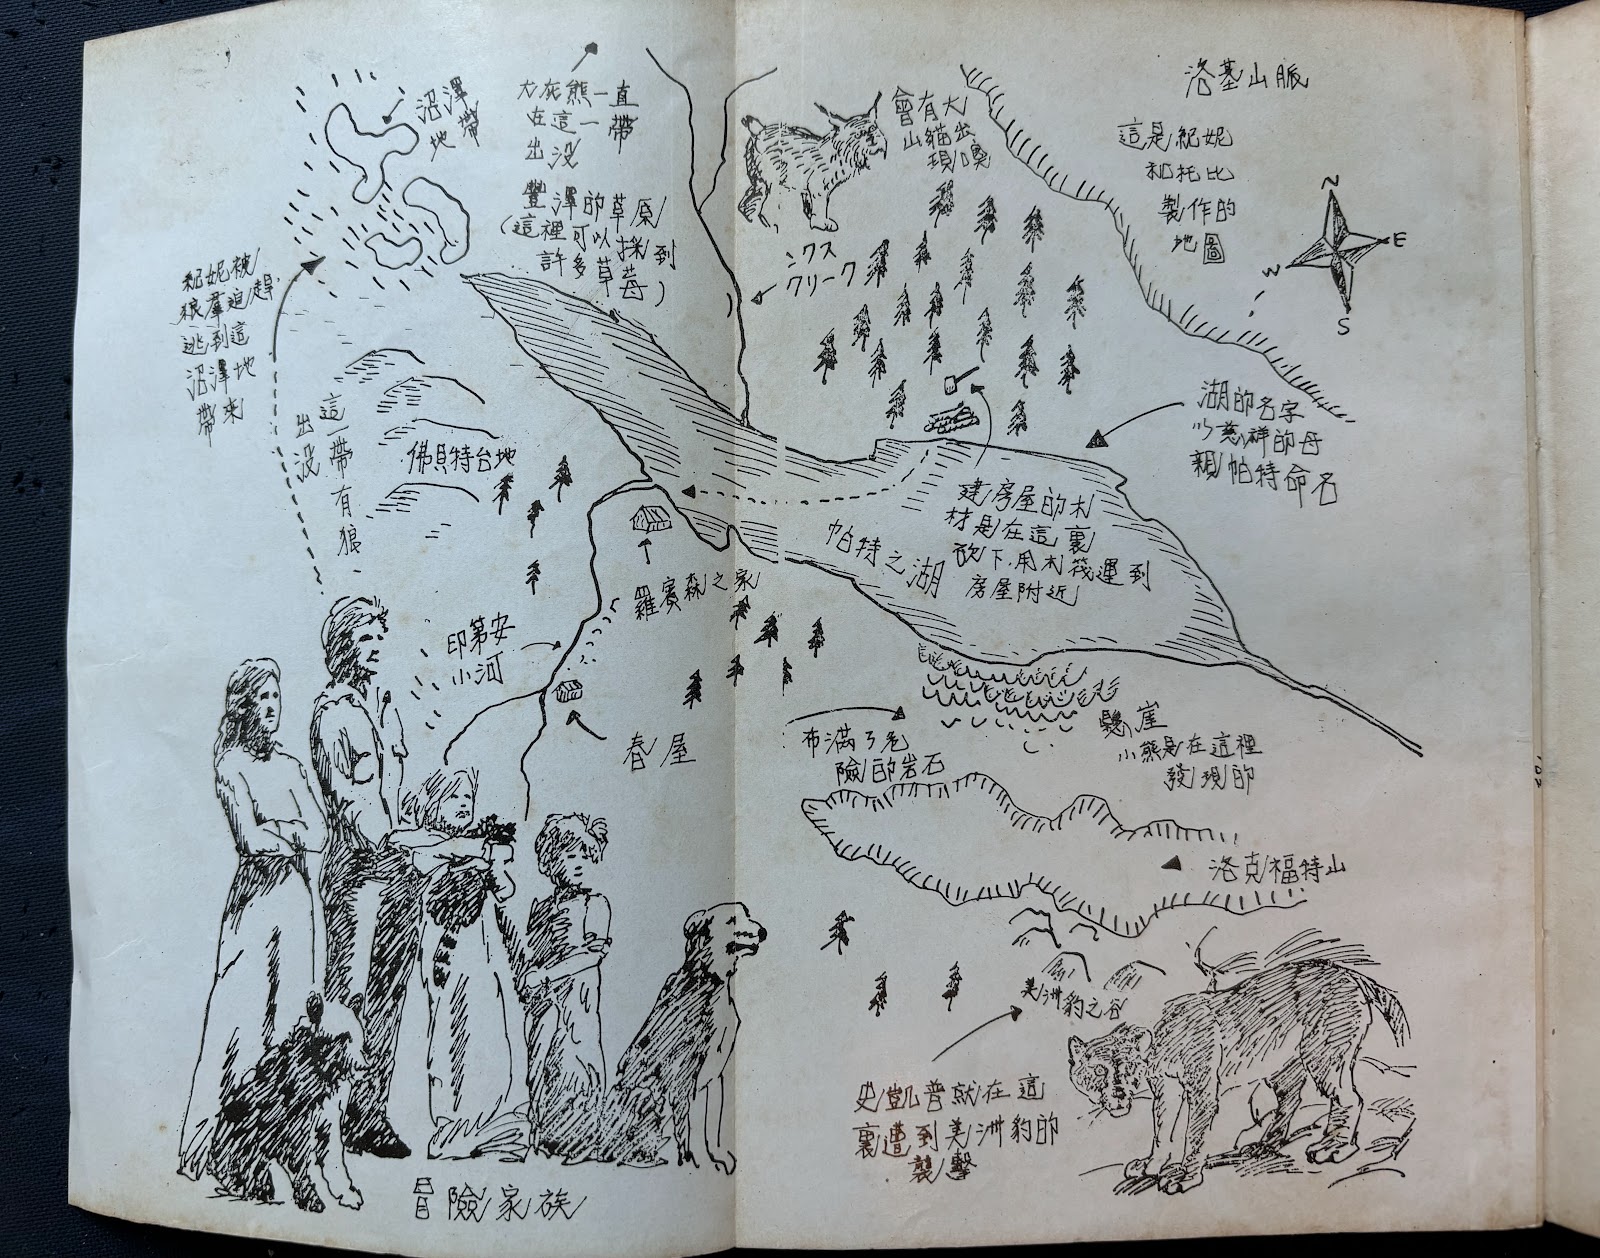 沼澤
地帶
大灰熊一直
在這一帶
出没
豐澤的草原
(這裡可以採到
許多草莓)
會有大
山貓出
現喚
シクス
クリーク
洛基山脈
這是紀妮
和托比
製作的
地圖
N
E
W
S
紀妮被
狼羣迫趕
逃到這
沼澤地
帶來
這一帶有狼
出沒
佛貝特台地
湖的名字
以慈祥的母
親帕特命名
建房屋的木
材是在這裏
砍下用木筏運到
房屋附近
帕特之湖
羅賓森之家
印第安
小河
春屋
布滿了危
險的岩石
懸崖
小熊是在這裡
發現的
洛克福特山
美洲豹之谷
史凱普就在這
裏遭到美洲豹的
襲擊
冒險家族